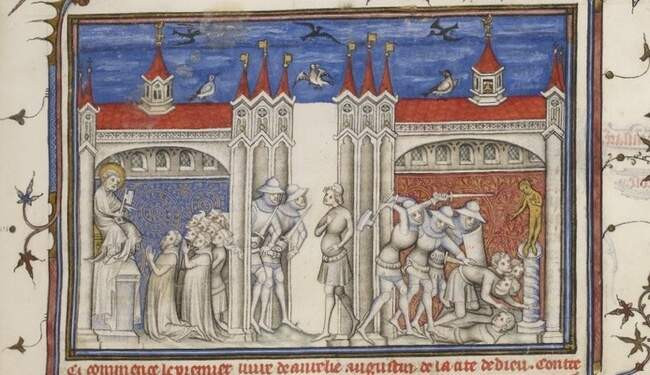 Ci commence le premier livre de aurelie augustin de la cite de dieu. Contre